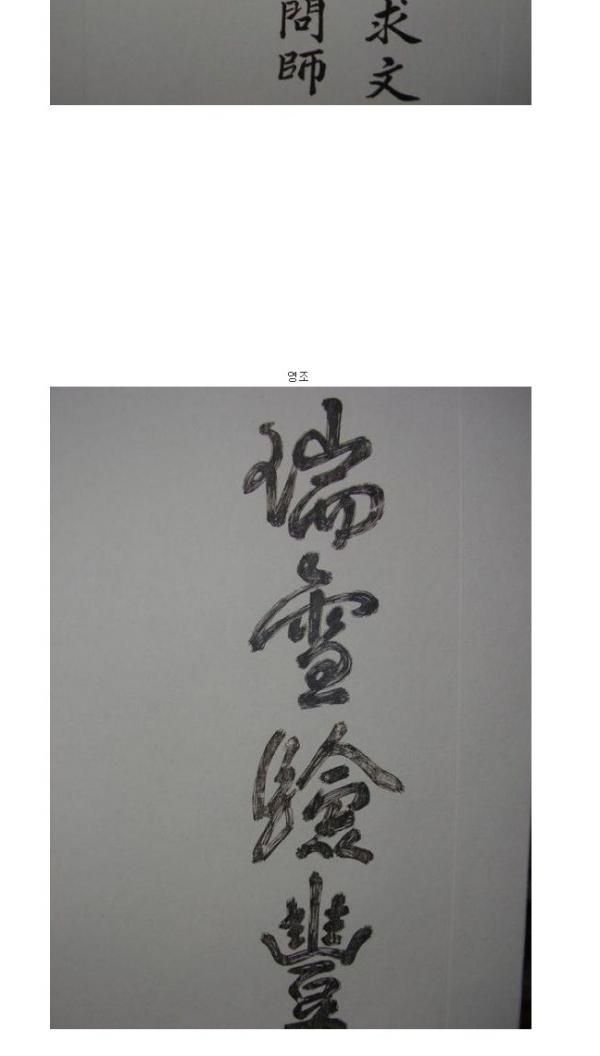 求文
問師
영조
瑞雪驗豐